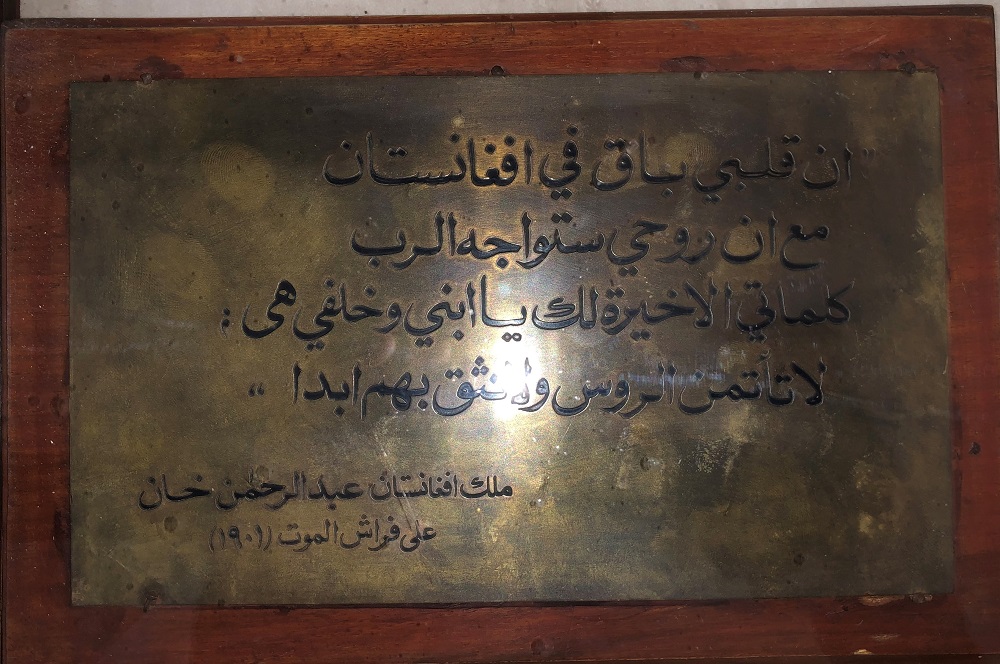 " ان قلبي بباق في افغانستان
مع ان روحي ستواجه الرب
كلماتي الاخيرة لك يا ابني وخلفي هى :
لا تأتمن الروس ولا تثق بهم ابدا "
ملك افغانستان عبد الرحمن خان
على فراش الموت (١٩٠١)